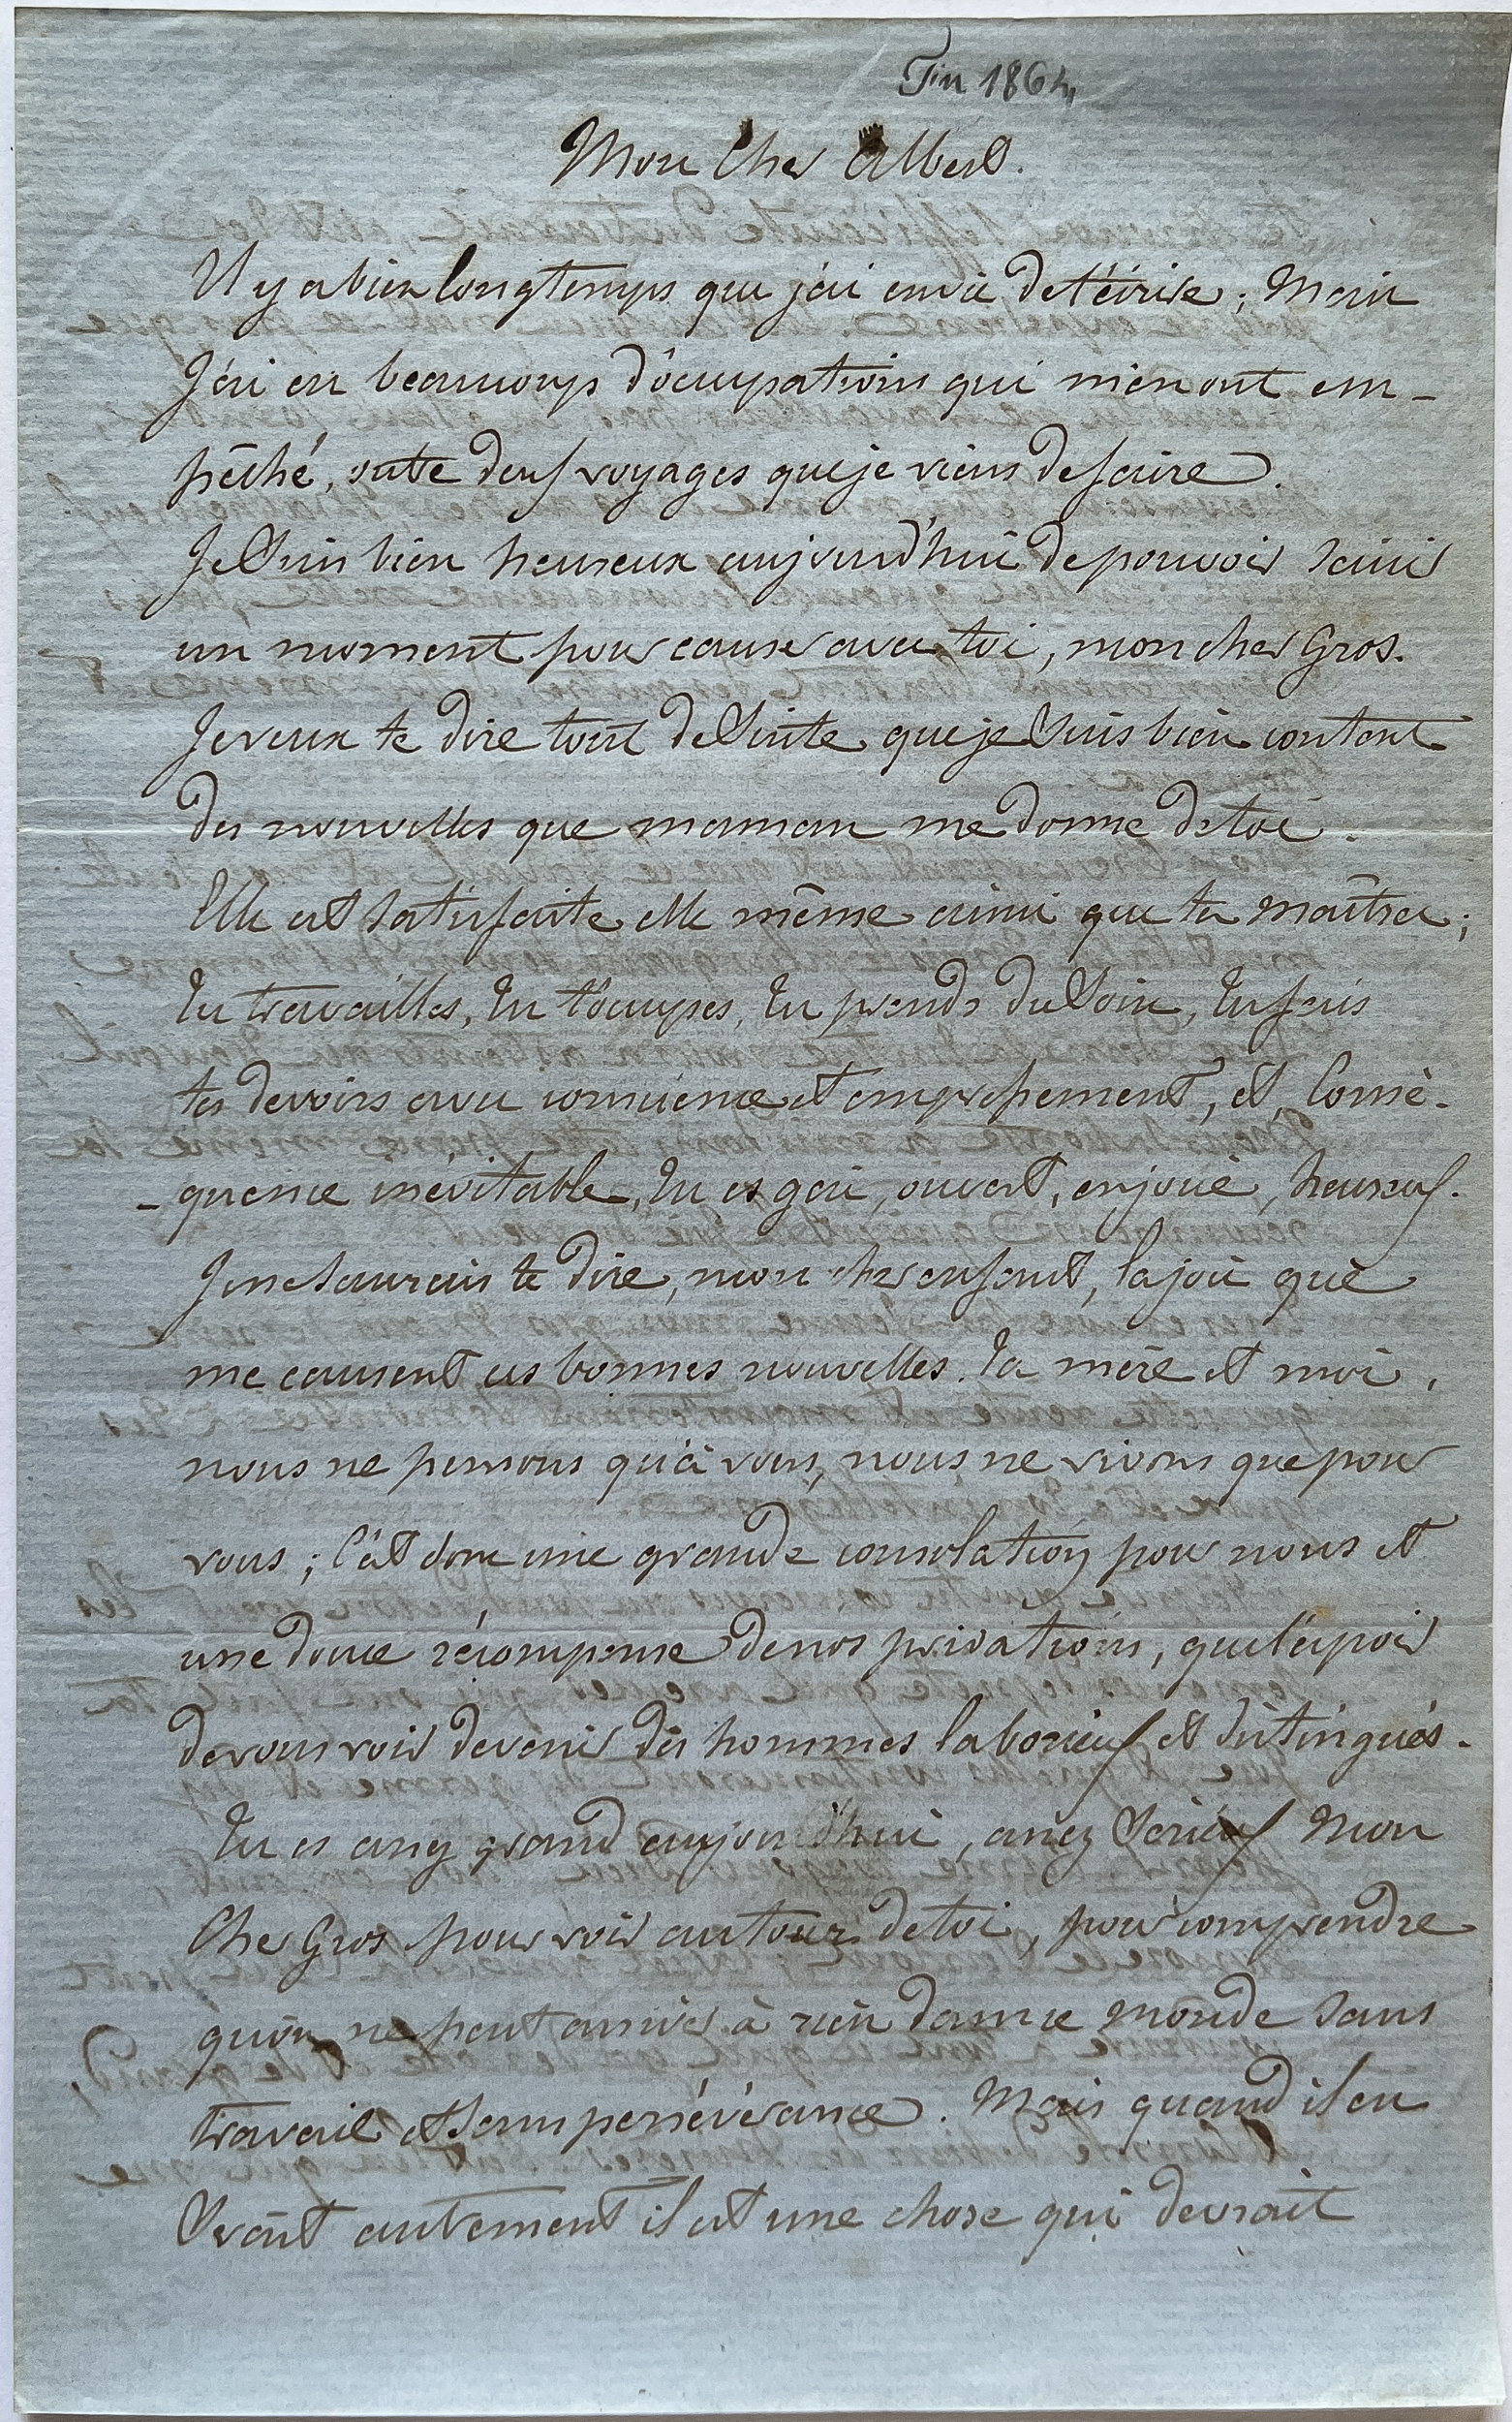 Fin 1864
Mon Cher Albert.
Il y a bien longtemps que j'ai envie de t'écrire ; Mais
J'ai eu beaucoup d'occupations qui m'en ont em-
pêché, outre deux voyages que je viens de faire.
Je suis bien heureux aujourd'hui de pouvoir saisir
un moment pour causer avec toi, mon cher Gros.
Je veux te dire tout de suite que je suis bien content
des nouvelles que maman me donne de toi.
Elle est satisfaite elle même ainsi que tes maîtres ;
tu travailles, tu t'occupes, tu prends du soin, tu fais
tes devoirs avec conscience et empressement, et, Consé-
-quence inévitable, tu es gai, ouvert, enjoué, heureux.
Je ne saurais te dire, mon cher enfant, la joie que
me causent ces bonnes nouvelles. ta mère et moi,
nous ne pensons qu'à vous, nous ne vivons que pour
vous ; C'est donc une grande consolation pour nous et
une douce récompense de nos privations, que l'espoir
de vous voir devenir des hommes laborieux et distingués.
tu es assez grand aujourd'hui, assez sérieux Mon
Cher Gros pour voir autour de toi, pour comprendre
qu'on ne peut arriver à rien dans ce monde sans
travail et sans persévérance. Mais quand il en
serait autrement il est une chose qui devrait